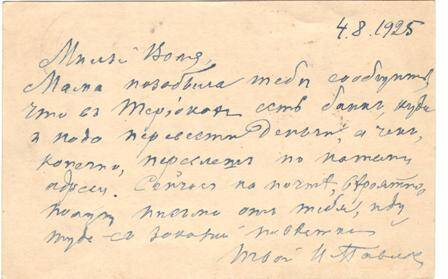 4.8.1925
Милый Воля,
Мама позабыла тебѣ сообщить,
что въ Теріокахъ есть банкъ, куда
и надо перевести деньги, а чекъ,
конечно, перешлешь по нашему
адресу. Сейчасъ на почтѣ, вѣроятно
получу письмо отъ тебя, иду
туда съ
Твой И. Павлов